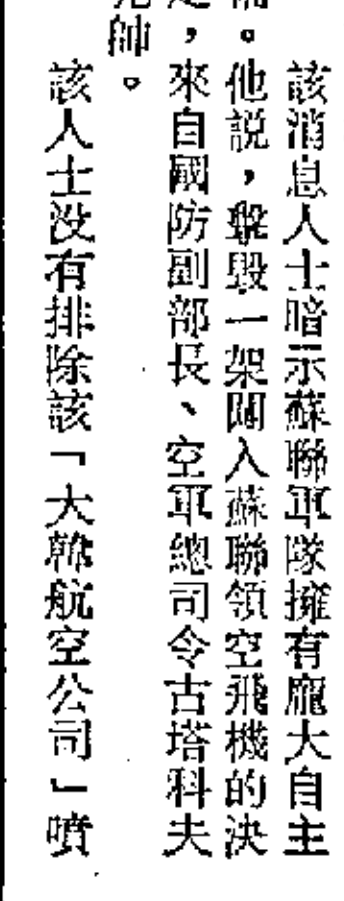 該消息人士暗示蘇聯軍隊擁有龐大自主
。他説，擊毀一架闖入蘇聯領空飛機的決
，來自國防副部長、空軍總司令古塔科夫
帥。
該人士没有排除該「大韓航空公司」噴